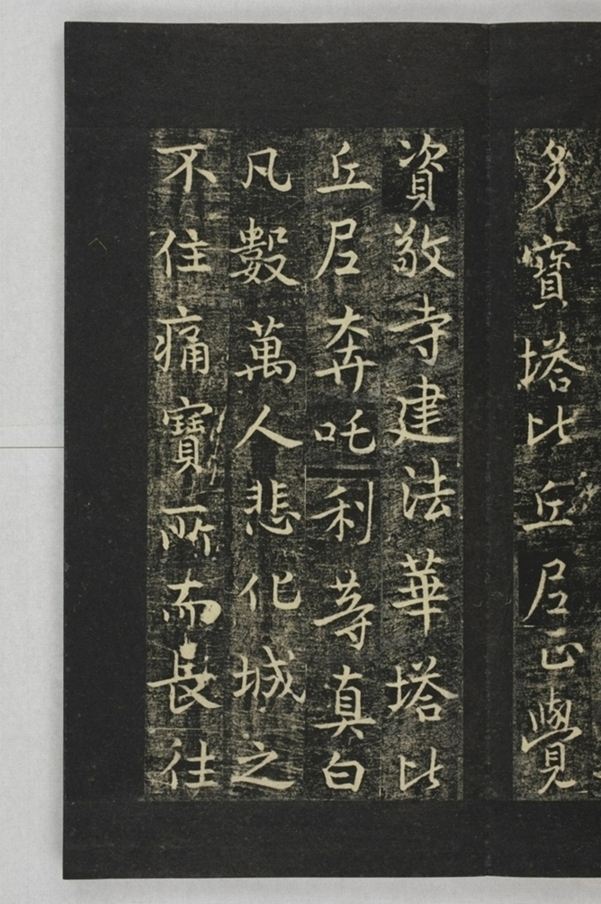 多寶塔比丘尼正覺
資敬寺建法華塔比
丘尼奔吒利等真白
凡數萬人悲化城之
不住痛寶所而長往